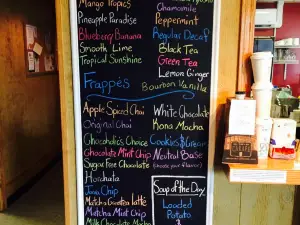 Mango Tropics
Pineapple Paradise
Blueberry Banana
Smooth Lime
Tropical Sunshine
Chamomile
Peppermint
Regular Decaf
Black Tea
Green Tea
Lemon Ginger
Frappés
Bourbon Vanilla
Apple Spiced Chai
Original Chai
Chocoholic's Choice
Chocolate Mint Chip
Sugar Free Chocolate
Horchata
Java Chip
Matcha Green tea latté
Matcha Mint Chip
Milk Chocolate Mocha
White Chocolate
Mono Mocha
Cookies & Cream
Neutral Base
Soup of the Day
Loaded
Potato